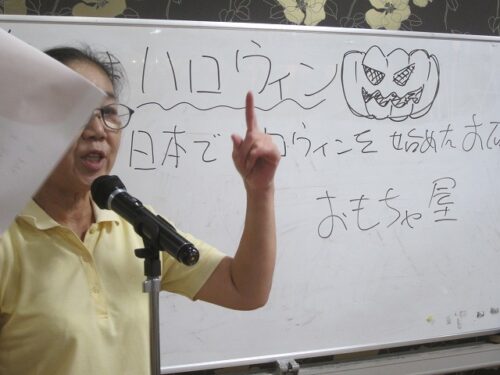 ハロウィン
日本で ロウィンを始めたおて
おもちゃ屋